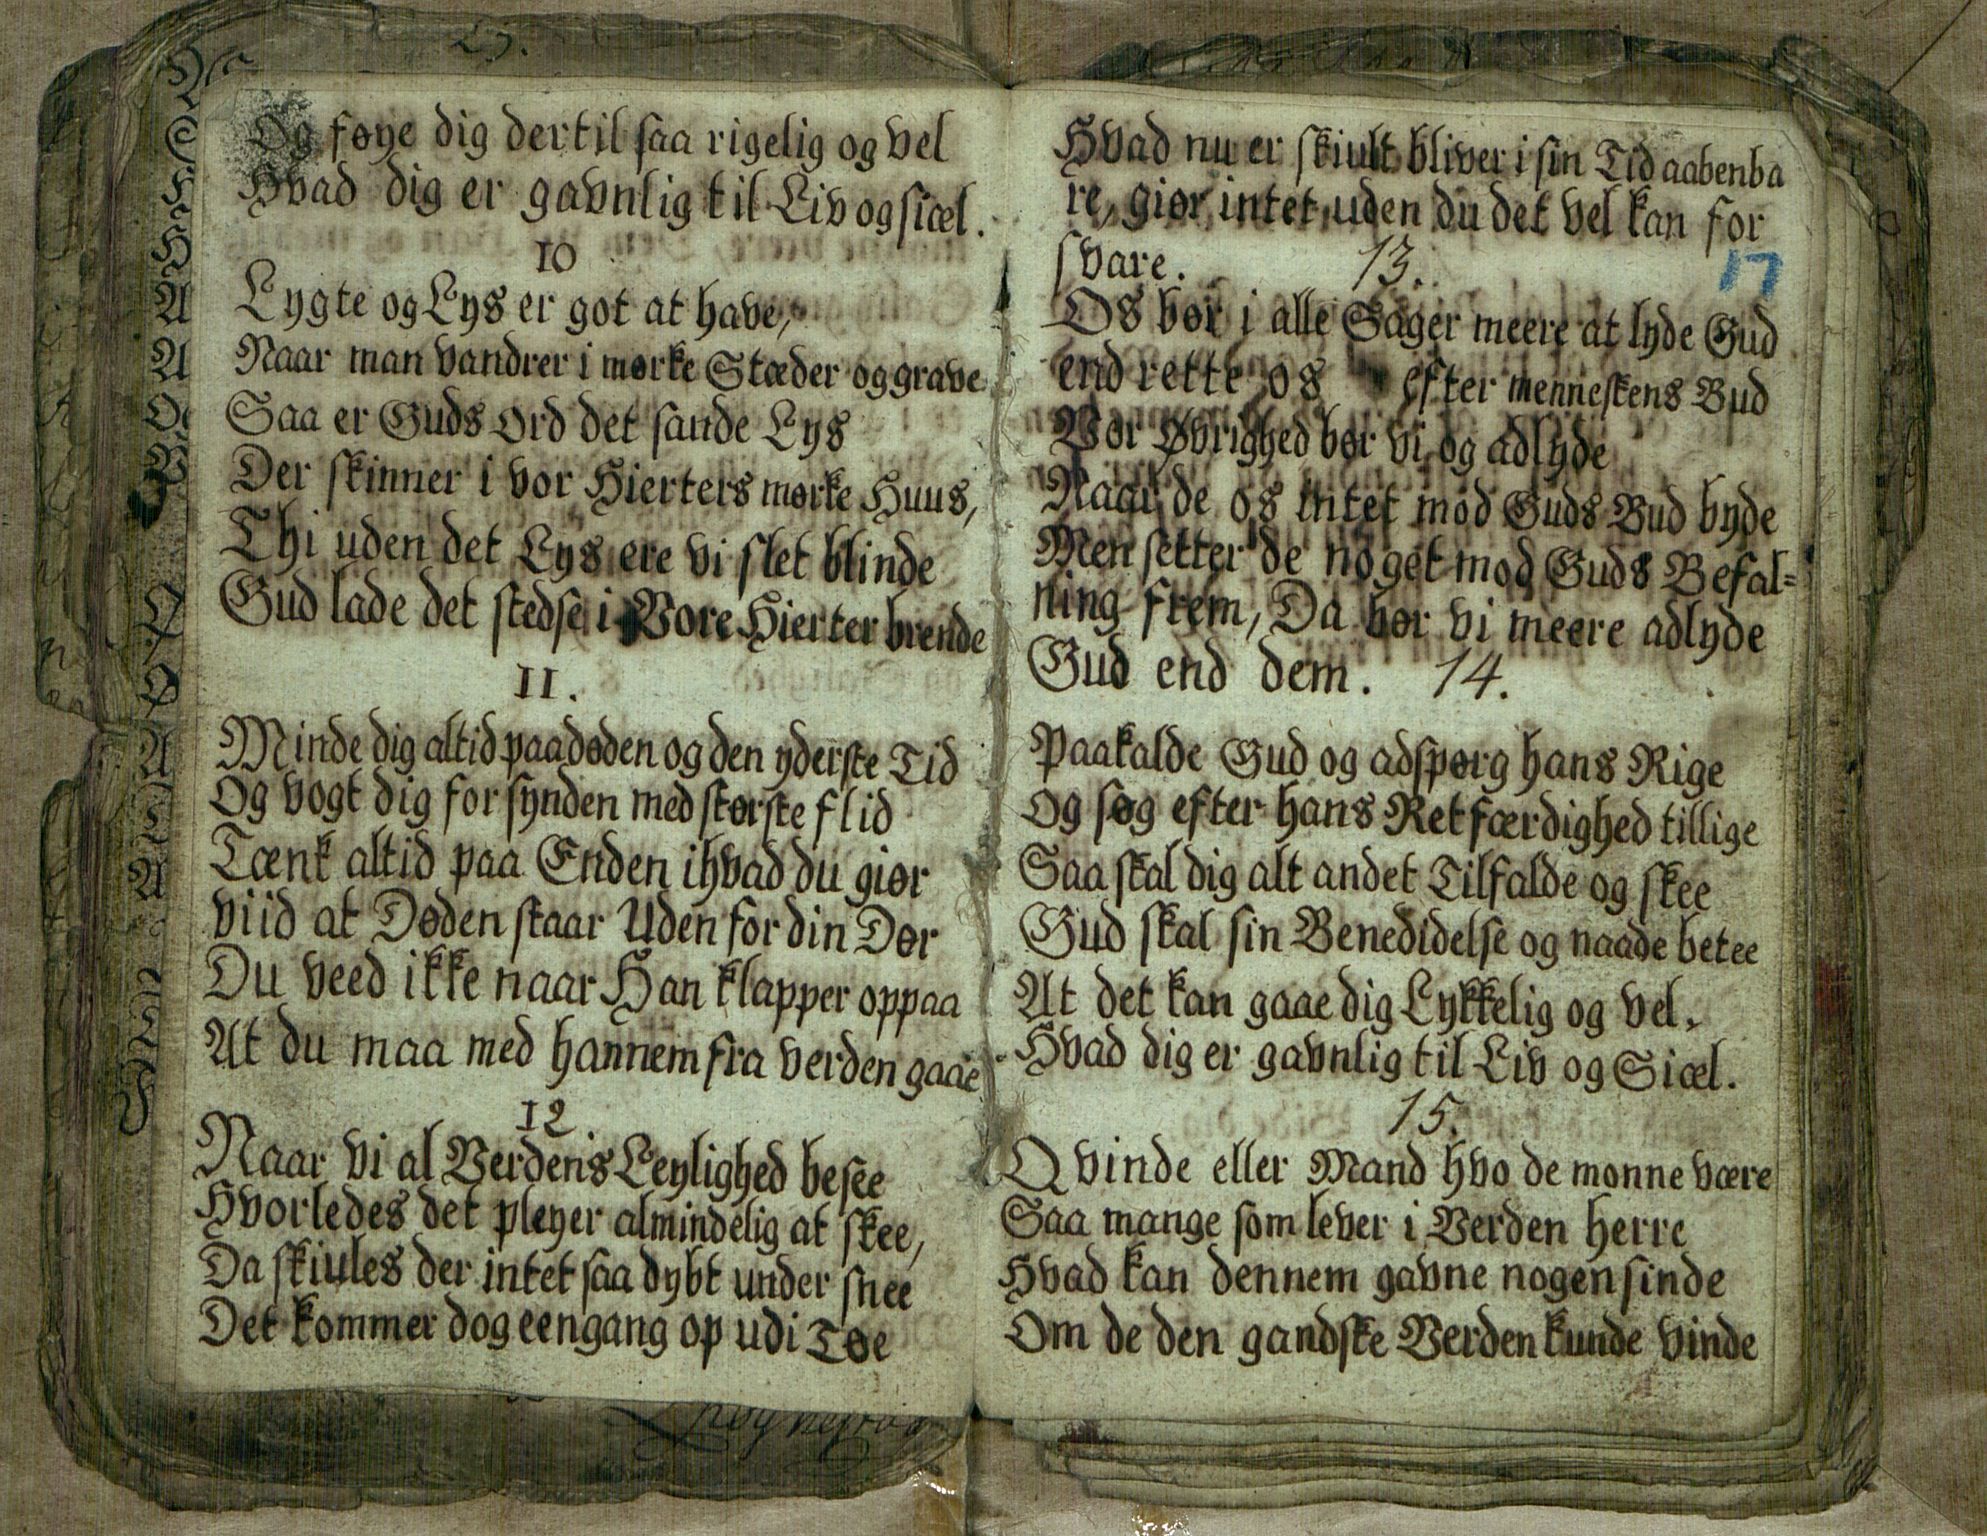 Og føye dig dertil saa rigelig og vel
Hvad dig er gavnlig til Liv og siæl.
10
Lygte og Lys er got at have,
Naar man vandrer i mørke Stæder og grave
Saa er Guds Ord det sande Lys
Der skinner i vor Hierters mørke Huus,
Thi uden det Lys ere vi slet blinde
Gud lade det stedse i Vore Hierter brende
11.
Minde dig altid paa døden og den yderste Tid
Og vogt dig for synden med største flid
Tænk altid paa Enden ihvad du giør
viid at Døden staar Uden for din Dør
Du veed ikke naar Han klapper oppaa
At du maa med hannem fra verden gaae
12.
Naar vi al Verdens Leylighed besee
Hvorledes det pleyer almindelig at skee,
Da skiules der intet saa dybt under snee
Det kommer dog eengang op udi Tøe
Hvad nu er skiult bliver i sin Tid aabenba
re, giør intet, uden du det vel kan for
svare. 13.
17
Os bør i alle Sager meere at lyde Gud
end rette os efter menneskens Bud
Vor Øvrighed bør vi og adlyde
Naar de os intet mod Guds Bud byde
Men setter de noget mod Guds Befal=
ning frem, Da bør vi meere adlyde
Gud end dem. 14.
Paakalde Gud og adspørg hans Rige
og søg efter hans Retfærdighed tillige
Saa skal dig alt andet Tilfalde og skee
Gud skal sin Benedidelse og naade betee
At det kan gaae dig Lykkelig og vel,
Hvad dig er gavnlig til Liv og Siæl.
15.
Qvinde eller Mand hvo de monne være
Saa mange som lever i Verden herre
Hvad kan dennem gavne nogensinde
Om de den gandske Verden kunde vinde